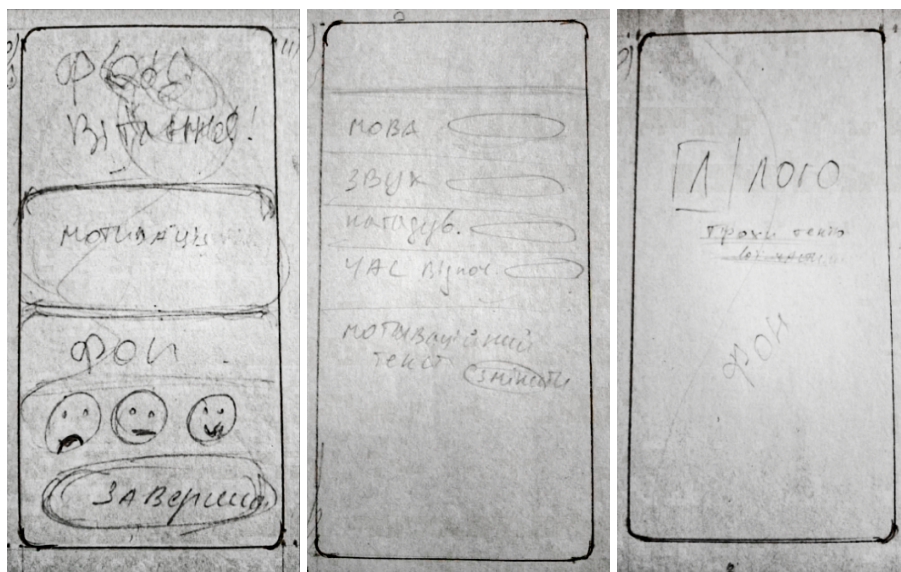 фон
Вітання!
мотивації
фон
Завершив
мова
звук
нагадув.
час відпоч.
мотиваційний
текст
змінити
Л лого
трохи тексту
фон